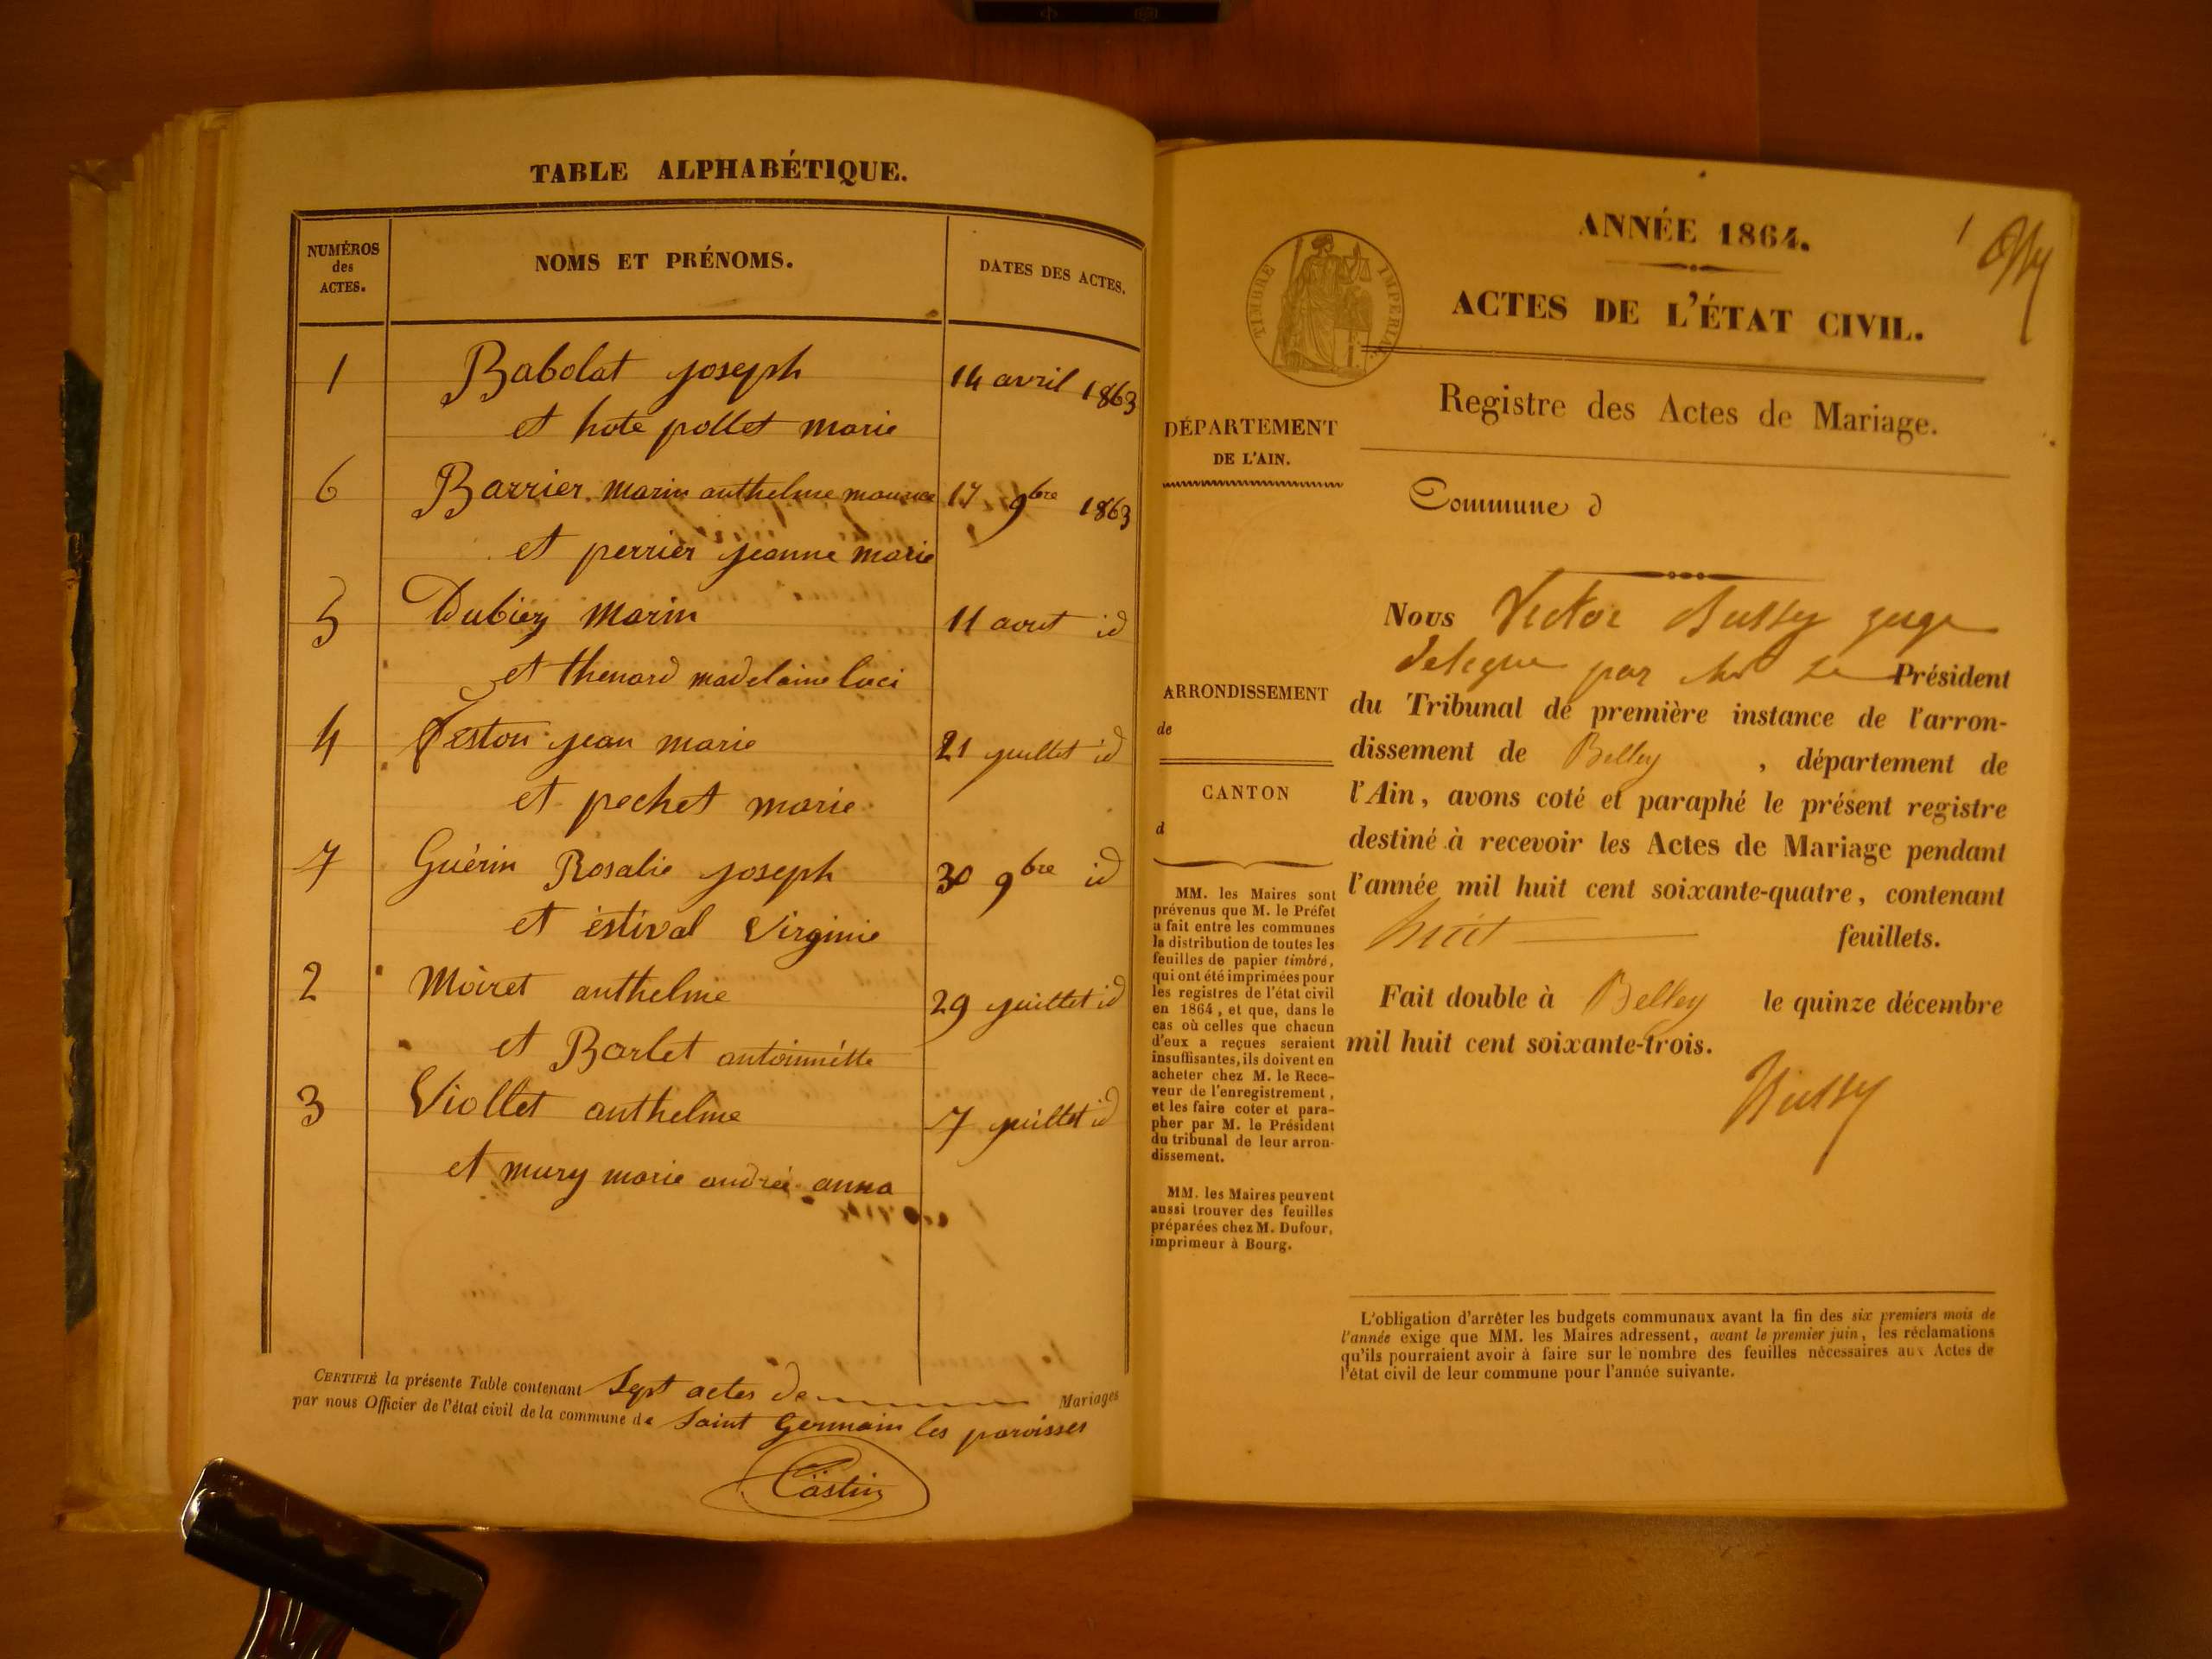 TABLE ALPHABÉTIQUE.
NUMÉROS
des
ACTES.
NOMS ET PRÉNOMS.
DATES DES ACTES.
1 Babolat joseph 14 avril 1863
et hote pollet marie
6 Barrier marin anthelme maurice 17 9bre 1863
et perrier jeanne marie
5 Dubiez marin 11 aout id
et thenard madelaine luci
4 Feston jean marie 21 juillet id
et pechet marie
7 Guérin Rosalie joseph 30 9bre id
et éstival Virginie
2 Moiret anthelme 29 juillet id
et Barlet antoinnétte
3 Viollet anthelme 7 juillet id
et mury marie andrée anna
CERTIFIÉ la présente Table contenant Sept actes de Mariages
par nous Officier de l'état civil de la commune de Saint Germain les paroisses
Castin
1
ANNÉE 1864.
TIMBRE IMPÉRIAL
ACTES DE L'ÉTAT CIVIL.
Registre des Actes de Mariage.
DÉPARTEMENT
DE L'AIN.
Commune d
ARRONDISSEMENT
de
CANTON
d
MM. les Maires sont
prévenus que M. le Préfet
a fait entre les communes
la distribution de toutes les
feuilles de papier timbré,
qui ont été imprimées pour
les registres de l'état civil
en 1864, et que, dans le
cas où celles que chacun
d'eux a reçues seraient
insuffisantes, ils doivent en
acheter chez M. le Rece-
veur de l'enregistrement,
et les faire coter et para-
pher par M. le Président
du tribunal de leur arron-
dissement.
MM. les Maires peuvent
aussi trouver des feuilles
préparées chez M. Dufour,
imprimeur à Bourg.
Nous Victor Bussy juge
delegue par Mr Le Président
du Tribunal de première instance de l'arron-
dissement de Belley, département de
l'Ain, avons coté et paraphé le présent registre
destiné à recevoir les Actes de Mariage pendant
l'année mil huit cent soixante-quatre, contenant
huit feuillets.
Fait double à Belley le quinze décembre
mil huit cent soixante-trois.
Bussy
L'obligation d'arrêter les budgets communaux avant la fin des six premiers mois de
l'année exige que MM. les Maires adressent, avant le premier juin, les réclamations
qu'ils pourraient avoir à faire sur le nombre des feuilles nécessaires aux Actes de
l'état civil de leur commune pour l'année suivante.